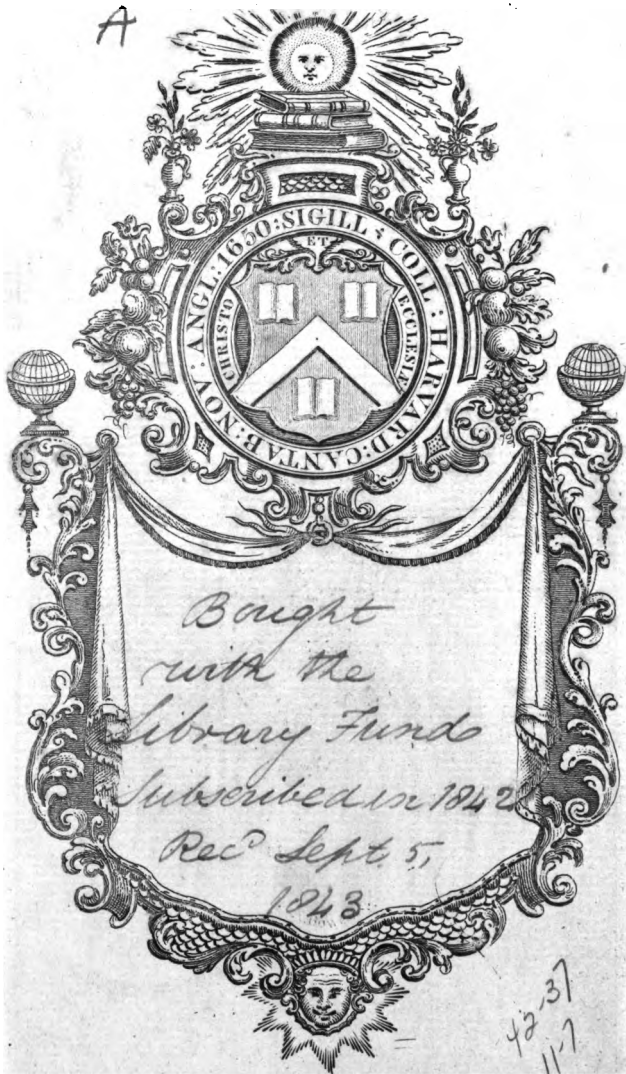 A
SIGILL : COLL : HARVARD : CANTAB : NOV : ANGL : 1650 :
CHRISTO ET ECCLESIÆ
Bought
with the
Library Fund
Subscribed in 1842
Recd Sept. 5,
1843
42-37
11-7